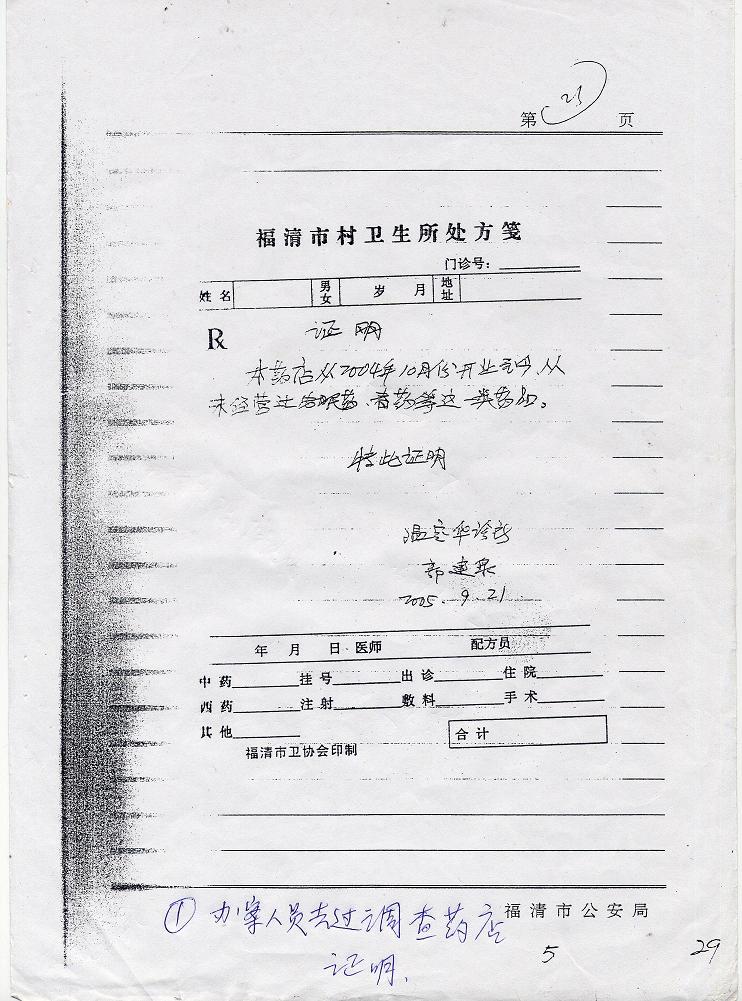 第 23 页
福清市村卫生所处方笺
门诊号：
姓名 男女 岁 月 地址
R 证明
本药店从2004年10月份开业至今，从
未经营过 药、毒药等这一类药品。
特此证明
温 华诊所
郭建
2005.9.21
年 月 日 医师 配方员
中药 挂号 出诊 住院
西药 注射 敷料 手术
其他 合计
福清市卫协会印制
福清市公安局
① 办案人员去过调查药店
证明、
5 29